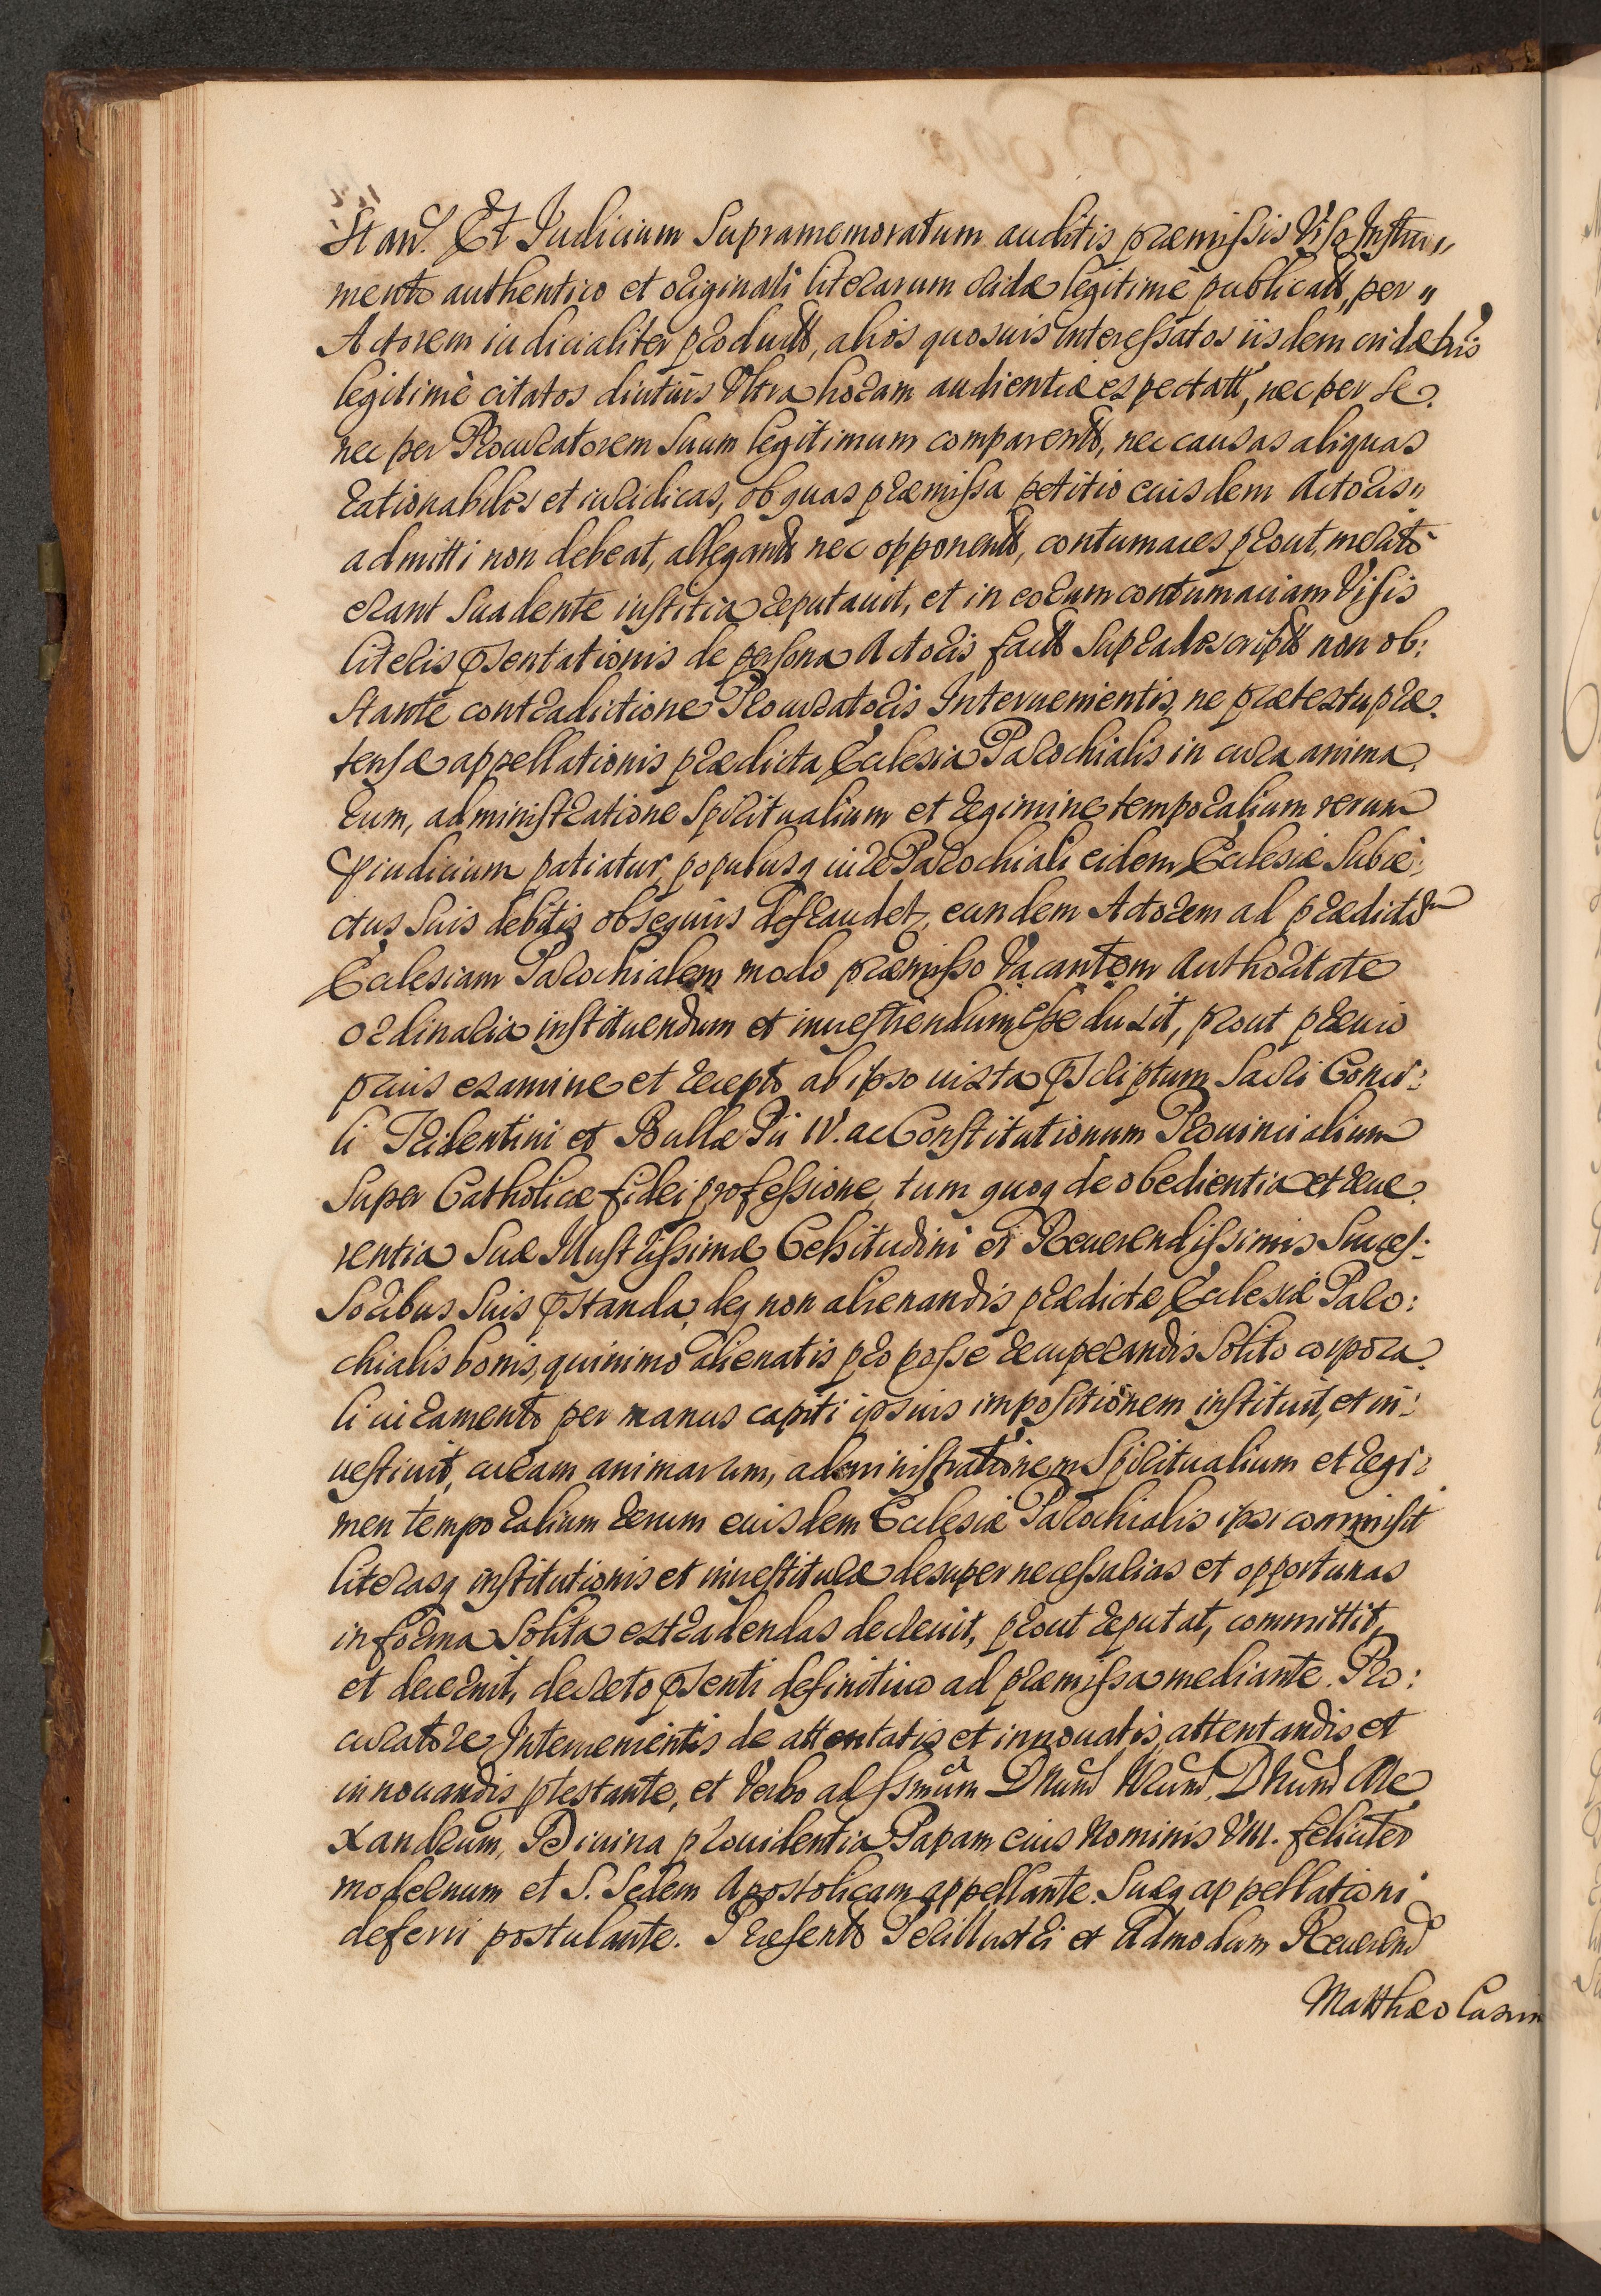 Stan. Et Iudicium Supramemoratum auditis præmissis Viso Instru„
mento authentico et originali literarum cridæ legitimè publicatt, per„
Actorem iudicialiter productt, alios quosuis interessatos iisdem cridæ lris
legitimè citatos diutius Vltra horam audientiæ expectatt, nec per se.
nec per Procuratorem suum legitimum comparentt, nec causas aliquas
rationabiles et iuridicas, ob quas præmissa petitio eiusdem Actoris„
admitti non debeat, allegantt nec opponentt, contumaces prout merito
erant suadente iustitia reputauit, et in eorum contumaciam Visis
literis psentationis de persona Actoris factt supradescriptt non ob:
stante contradictione Procuratoris Interuenientis, ne prætextu præ.
tensæ appellationis prædicta Ecclesia Parochialis in cura anima.
rum, administratione spiritualium et regimine temporalium rerum
piudicium patiatur, populusq iure Parochiali eidem Ecclesiæ subie:
ctus suis debitis obsequiis defraudet, eundem Actorem ad prædictam
Ecclesiam Parochialem modo præmisso Vacantem Authoritate
ordinaria instituendum et inuestiendum esse duxit, prout præuio
prius examine et recepto ab ipso iuxta pscriptum Sacri Conci:
li Tridentini et Bullæ Pii IV. ac Constitutionum Prouincialium
super Catholicæ fidei professione, tum quoq de obedientia et reue.
rentia Suæ Illustrissimæ Celsitudini et Reuerendissimis Succes:
soribus suis pstanda, deq non alienandis prædictæ Ecclesiæ Paro:
chialis bonis, quinimo alienatis pro posse recuperandis solito corpora.
li iuramento per manus capiti ipsius impositionem instituit, et in:
uestiuit, curam animarum, administrationem spiritualium et regi:
men temporalium rerum eiusdem Ecclesiæ Parochialis ipsi commisit
literasq institutionis et inuestituræ desuper necessarias et opportunas
in forma solita extradendas decreuit, prout reputat, committit,
et decernit, decreto psenti definitiuo ad præmissa mediante. Pro:
curatore Interuenientis de attentatis et innouatis, attentandis et
innouandis ptestante, et Verbo ad Ssmum Dnum Nrum, Dnum Ale
xandrum, Diuina prouidentia Papam eius Nominis VIII. feliciter
modernum et S. Sedem Apostolicam appellante. Suæq appellationi
deferri postulante. Præsentt Perillustri et Admodum Reuerend
Matthæo Casim